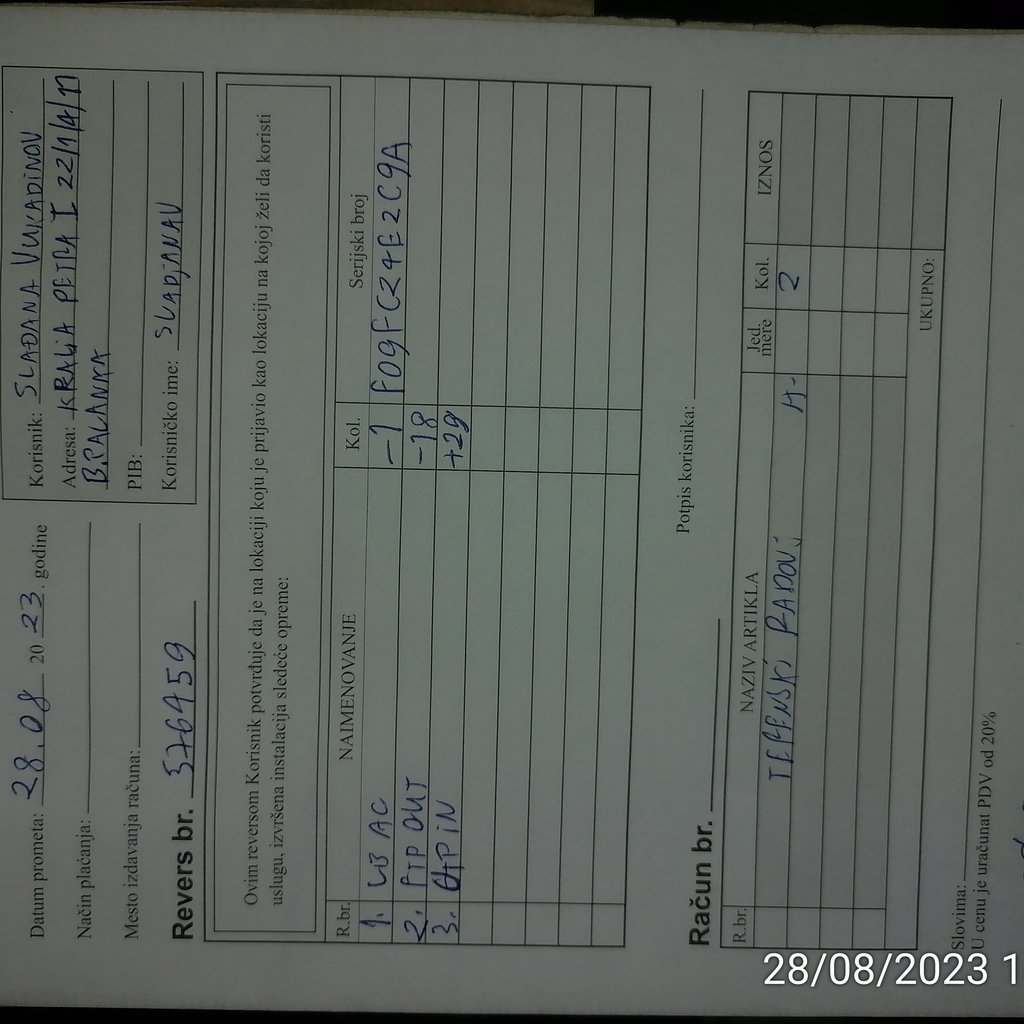 Datum prometa: 28.08 2023. godine
Način plaćanja:
Mesto izdavanja računa:
Revers br. 576459
Korisnik: SLAĐANA VUKADINOV
Adresa: KRALJA PETRA I 22/1/4/11
B.PALANKA
PIB:
Korisničko ime: SLADJANAV
Ovim reversom Korisnik potvrđuje da je na lokaciji koju je prijavio kao lokaciju na kojoj želi da koristi
uslugu, izvršena instalacija sledeće opreme:
R.br. NAIMENOVANJE Kol. Serijski broj
1. LB AC -1 F09FC24E2C9A
2. FTP OUT -18
3. UTP IN +29
Potpis korisnika:
Račun br.
R.br. NAZIV ARTIKLA Jed. mere Kol. IZNOS
TERENSKI RADOVI 2
UKUPNO:
Slovima:
U cenu je uračunat PDV od 20%
28/08/2023 1